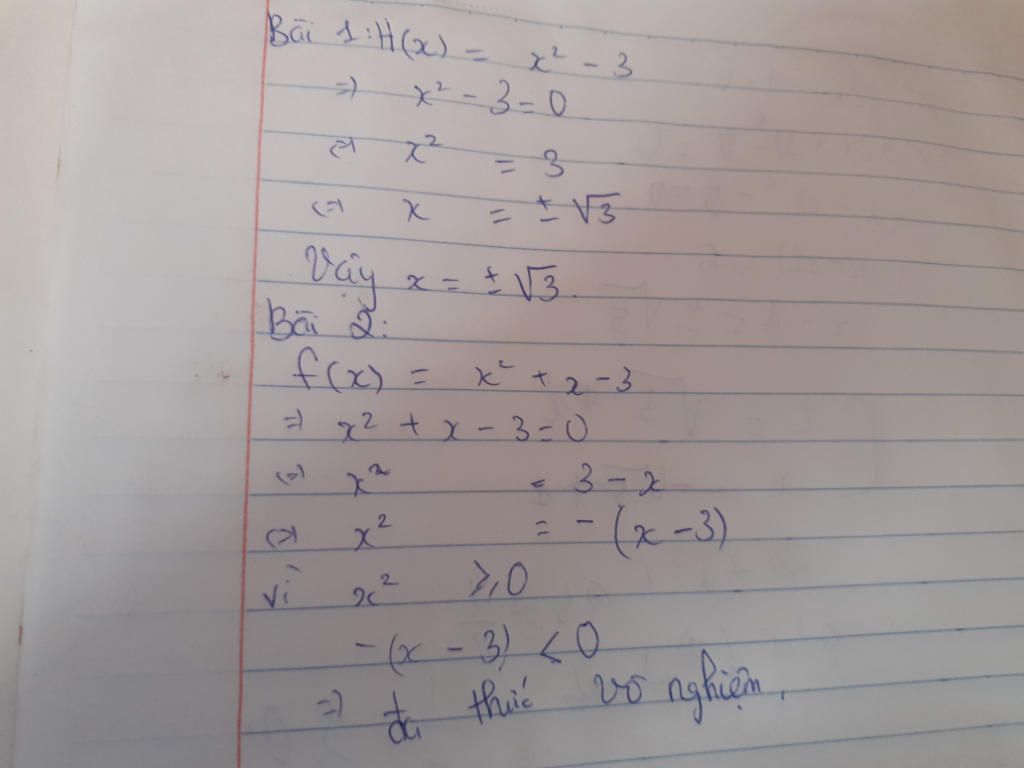 Bài 1: H(x) = x² - 3
=> x² - 3 = 0
<=> x² = 3
<=> x = ± √3
Vậy x = ± √3.
Bài 2:
f(x) = x² + x - 3
=> x² + x - 3 = 0
<=> x² = 3 - x
<=> x² = - (x - 3)
vì x² ≥ 0
- (x - 3) < 0
=> thức vô nghiệm.